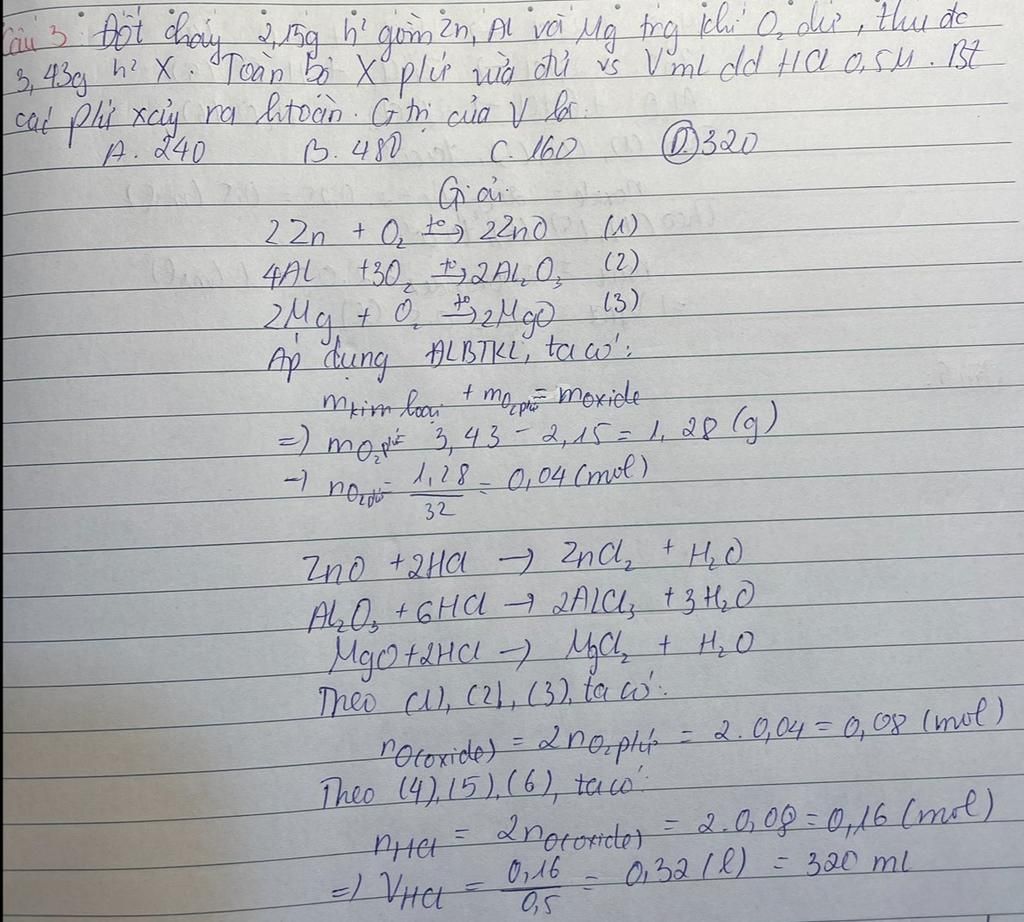 Câu 3 Đốt cháy 2,15g h² gồm Zn, Al và Mg trg khí O₂ dư, thu đc
3,43g h² X. Toàn bộ X pứ vừa đủ vs V ml dd HCl 0,5M. Bt
các pứ xảy ra htoàn. G trị của V là:
A. 240 B. 480 C. 160 D. 320
Giải
2Zn + O₂ →(t°) 2ZnO (1)
4Al + 3O₂ →(t°) 2Al₂O₃ (2)
2Mg + O₂ →(t°) 2MgO (3)
Áp dụng ĐLBTKL, ta có:
m kim loại + m O₂ pứ = m oxide
=> m O₂ pứ = 3,43 - 2,15 = 1,28 (g)
→ n O₂ pứ = 1,28/32 = 0,04 (mol)
ZnO + 2HCl → ZnCl₂ + H₂O
Al₂O₃ + 6HCl → 2AlCl₃ + 3H₂O
MgO + 2HCl → MgCl₂ + H₂O
Theo (1), (2), (3), ta có:
n O(oxide) = 2n O₂ pứ = 2. 0,04 = 0,08 (mol)
Theo (4), (5), (6), ta có:
n HCl = 2n O(oxide) = 2. 0,08 = 0,16 (mol)
=> V HCl = 0,16/0,5 = 0,32 (l) = 320 ml